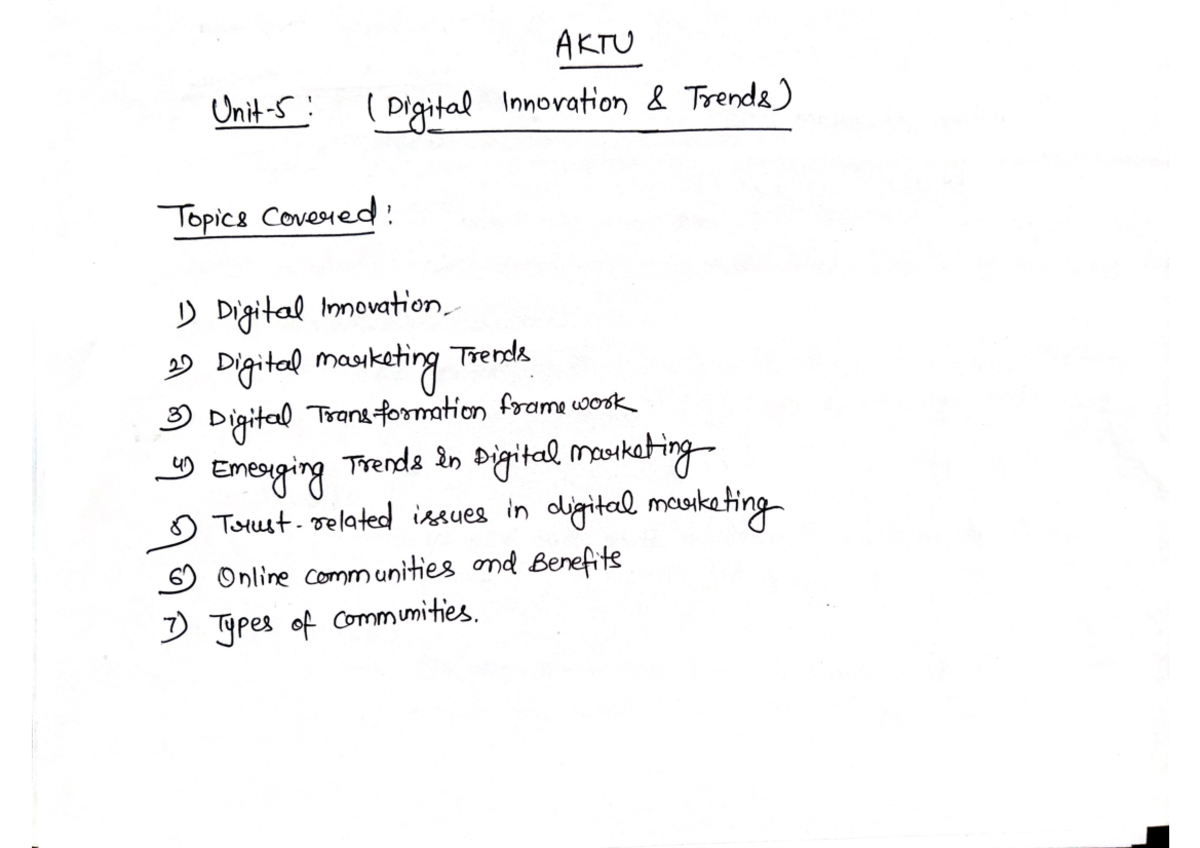 AKTU
Unit-5: (Digital Innovation & Trends)
Topics Covered:
1) Digital Innovation
2) Digital marketing Trends
3) Digital Transformation framework
4) Emerging Trends in Digital marketing
5) Trust-related issues in digital marketing
6) Online communities and Benefits
7) Types of communities.